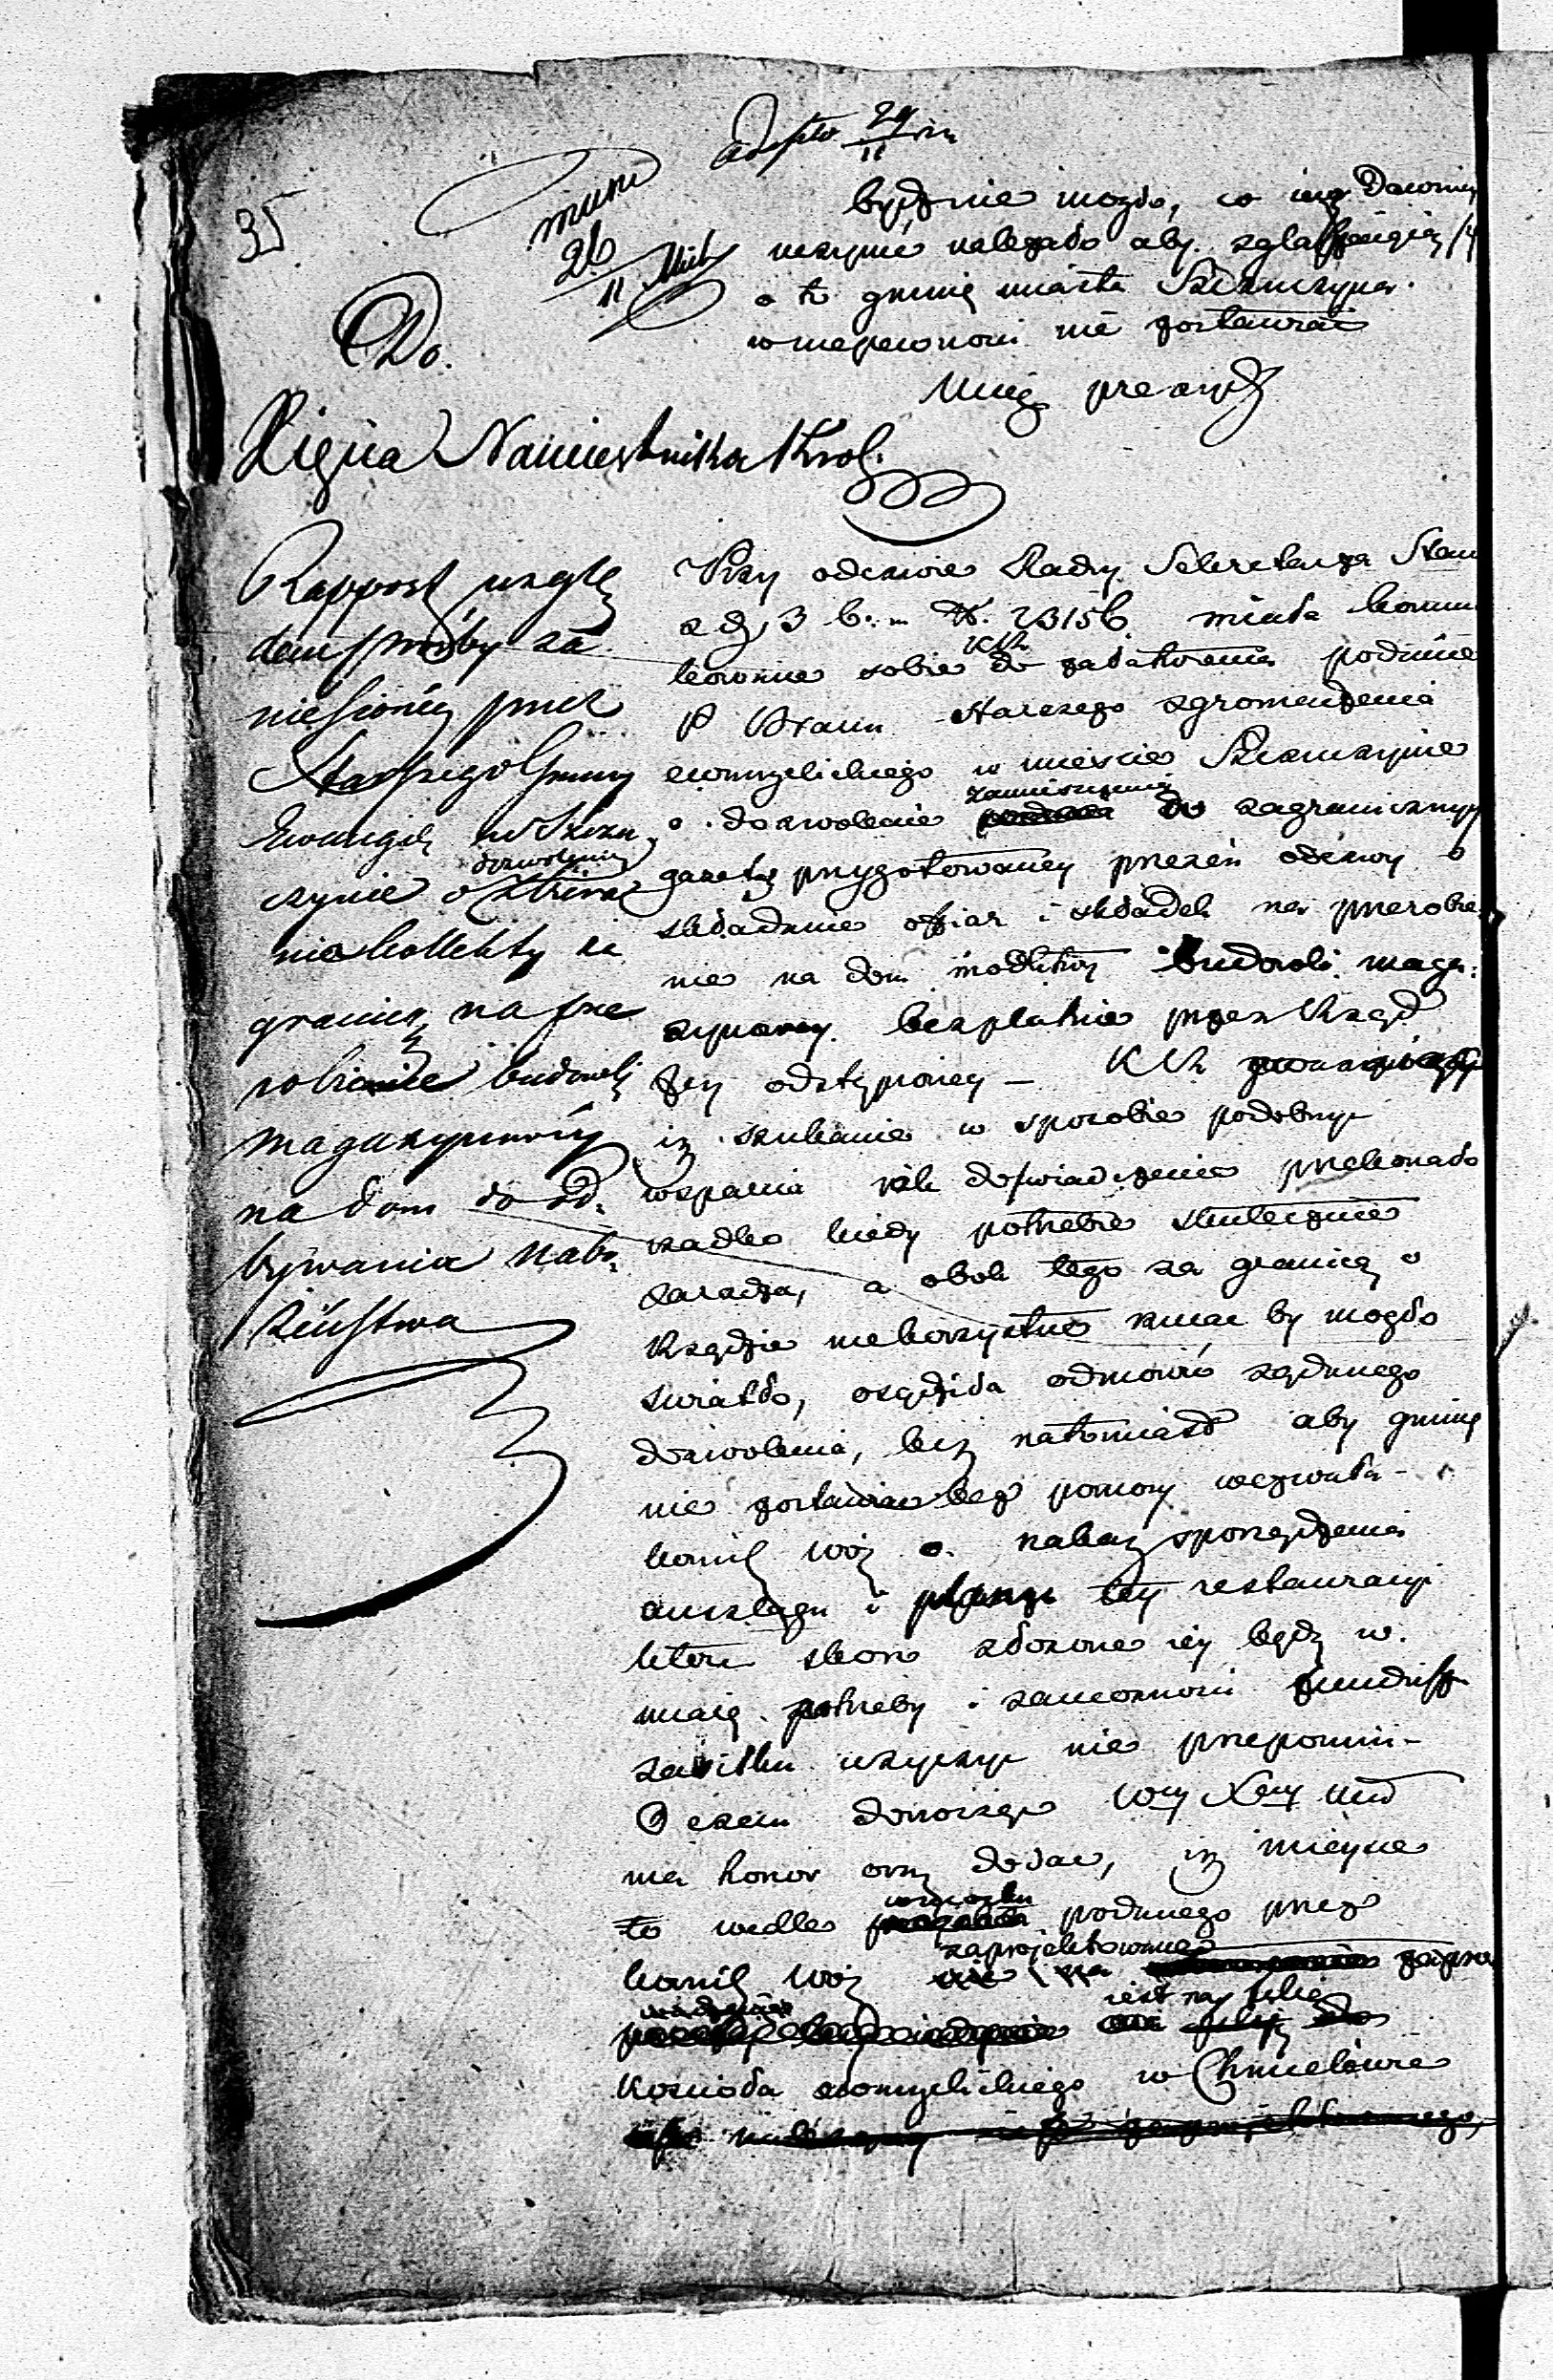 35
29
11
mum
26
11
będzie mogło, co iuż dawniey
uczynić należało aby zgłaszaiącą
o to gminę miasta Szczuczyna
w niepewności nie zostawiać
Do.
Xięcia Namiestnika Król.
Rapport wzglę
dem prośby za
niesioney przez
Starszego Gminy
Ewangiel. w Szczu
czynie o dozwolenie zbiera
nia kollekty za
granicą na prze
robienie budowli
magazynowey
na dom do od
bywania nabo
żeństwa
Przy odezwie Rady Sekretarza Stanu
z d. 3 b. m. N. 23156 miała kommu
nikowane sobie do załatwienia podanie
P Braun starszego zgromadzenia
ewangelickiego w mieście Szczuczynie
o dozwolenie zamieszczenia w zagranicznych
gazetach przygotowaney przezeń odezwy o
składanie ofiar i składek na przerobie
nie na dom modlitwy budowli maga
zynowey bezpłatnie przez Rząd
iey odstąpioney – KRz
iż szukanie w sposobie podobnym
wsparcia iak doświadczenie przekonało
rzadko kiedy potrzebie skutecznie
zaradza, a obok tego za granicą o
Rządzie niekorzystne rzucać by mogło
światło, osądziła odmówić żądanego
dozwolenia, lecz natomiast aby gminy
nie zostawiać bez pomocy wezwała
Komis Woj o nakaz sporządzenia
anszlagu i planu tey restauracyi
które skoro złożone iey będą w
miarę potrzeby i zamożności funduszu
zasiłku użyczyć nie przepomni –
O czem donosząc
ma honor oraz dodać, iż mieysce
to wedle wniosku podanego przez
Komis Woj zaprojektowane
iest na filię
Kościoła ewangelickiego w Chmielówce